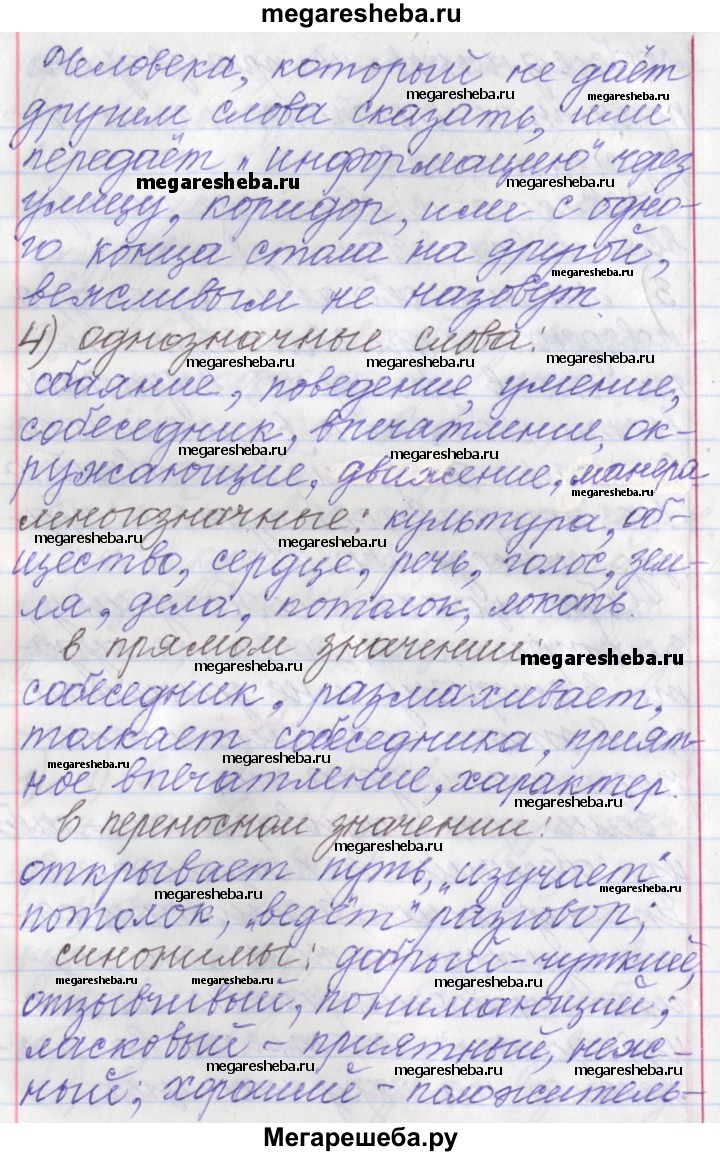 megaresheba.ru
Человека, который не даёт
другим слова сказать, или
передаёт "информацию" через
улицу, коридор, или с одно-
го конца стола на другой,
вежливым не назовут
4) однозначные слова:
обаяние, поведение, умение,
собеседник, впечатление, ок-
ружающие, движение, манера
многозначные: культура, об-
щество, сердце, речь, голос, зем-
ля, дела, потолок, локоть.
в прямом значении:
собеседник, размахивает,
толкает собеседника, прият-
ное впечатление, характер.
в переносном значении:
открывает путь, "изучает"
потолок, "ведёт" разговор;
синонимы: добрый - чуткий,
отзывчивый, понимающий;
ласковый - приятный, неж-
ный; хороший - положитель-
Мегарешеба.ру